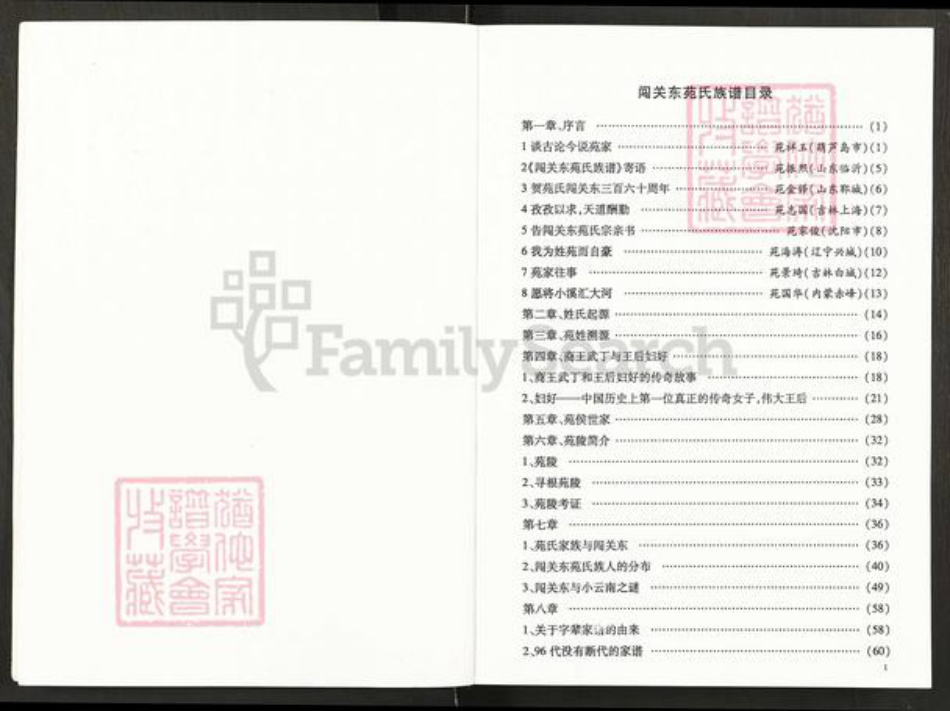 闯关东苑氏族谱目录
第一章、序言 ……………… (1)
1 谈古论今说苑家 ……………… 苑祥玉(葫芦岛市)(1)
2《闯关东苑氏族谱》寄语 ……………… 苑振熙(山东临沂)(5)
3 贺苑氏闯关东三百六十周年 ……………… 苑金铎(山东郓城)(6)
4 孜孜以求,天道酬勤 ……………… 苑志国(吉林上海)(7)
5 告闯关东苑氏宗亲书 ……………… 苑家俊(沈阳市)(8)
6 我为姓苑而自豪 ……………… 苑海涛(辽宁兴城)(10)
7 苑家往事 ……………… 苑景琦(吉林白城)(12)
8 愿将小溪汇大河 ……………… 苑国华(内蒙赤峰)(13)
第二章、姓氏起源 ……………… (14)
第三章、苑姓溯源 ……………… (16)
第四章、商王武丁与王后妇好 ……………… (18)
1、商王武丁和王后妇好的传奇故事 ……………… (18)
2、妇好——中国历史上第一位真正的传奇女子,伟大王后 ……………… (21)
第五章、苑侯世家 ……………… (28)
第六章、苑陵简介 ……………… (32)
1、苑陵 ……………… (32)
2、寻根苑陵 ……………… (33)
3、苑陵考证 ……………… (34)
第七章 ……………… (36)
1、苑氏家族与闯关东 ……………… (36)
2、闯关东苑氏族人的分布 ……………… (40)
3、闯关东与小云南之谜 ……………… (49)
第八章 ……………… (58)
1、关于字辈家谱的由来 ……………… (58)
2、96 代没有断代的家谱 ……………… (60)
1
FamilySearch
猶他家
譜學會
收藏
猶他家
譜學會
收藏